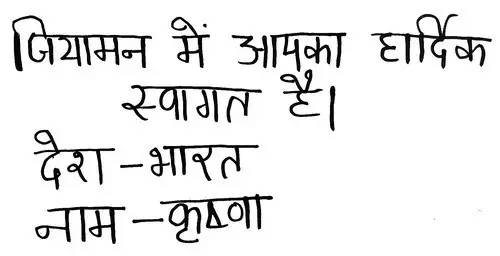 जियामन में आपका हार्दिक
स्वागत है।
देश - भारत
नाम - कृष्णा